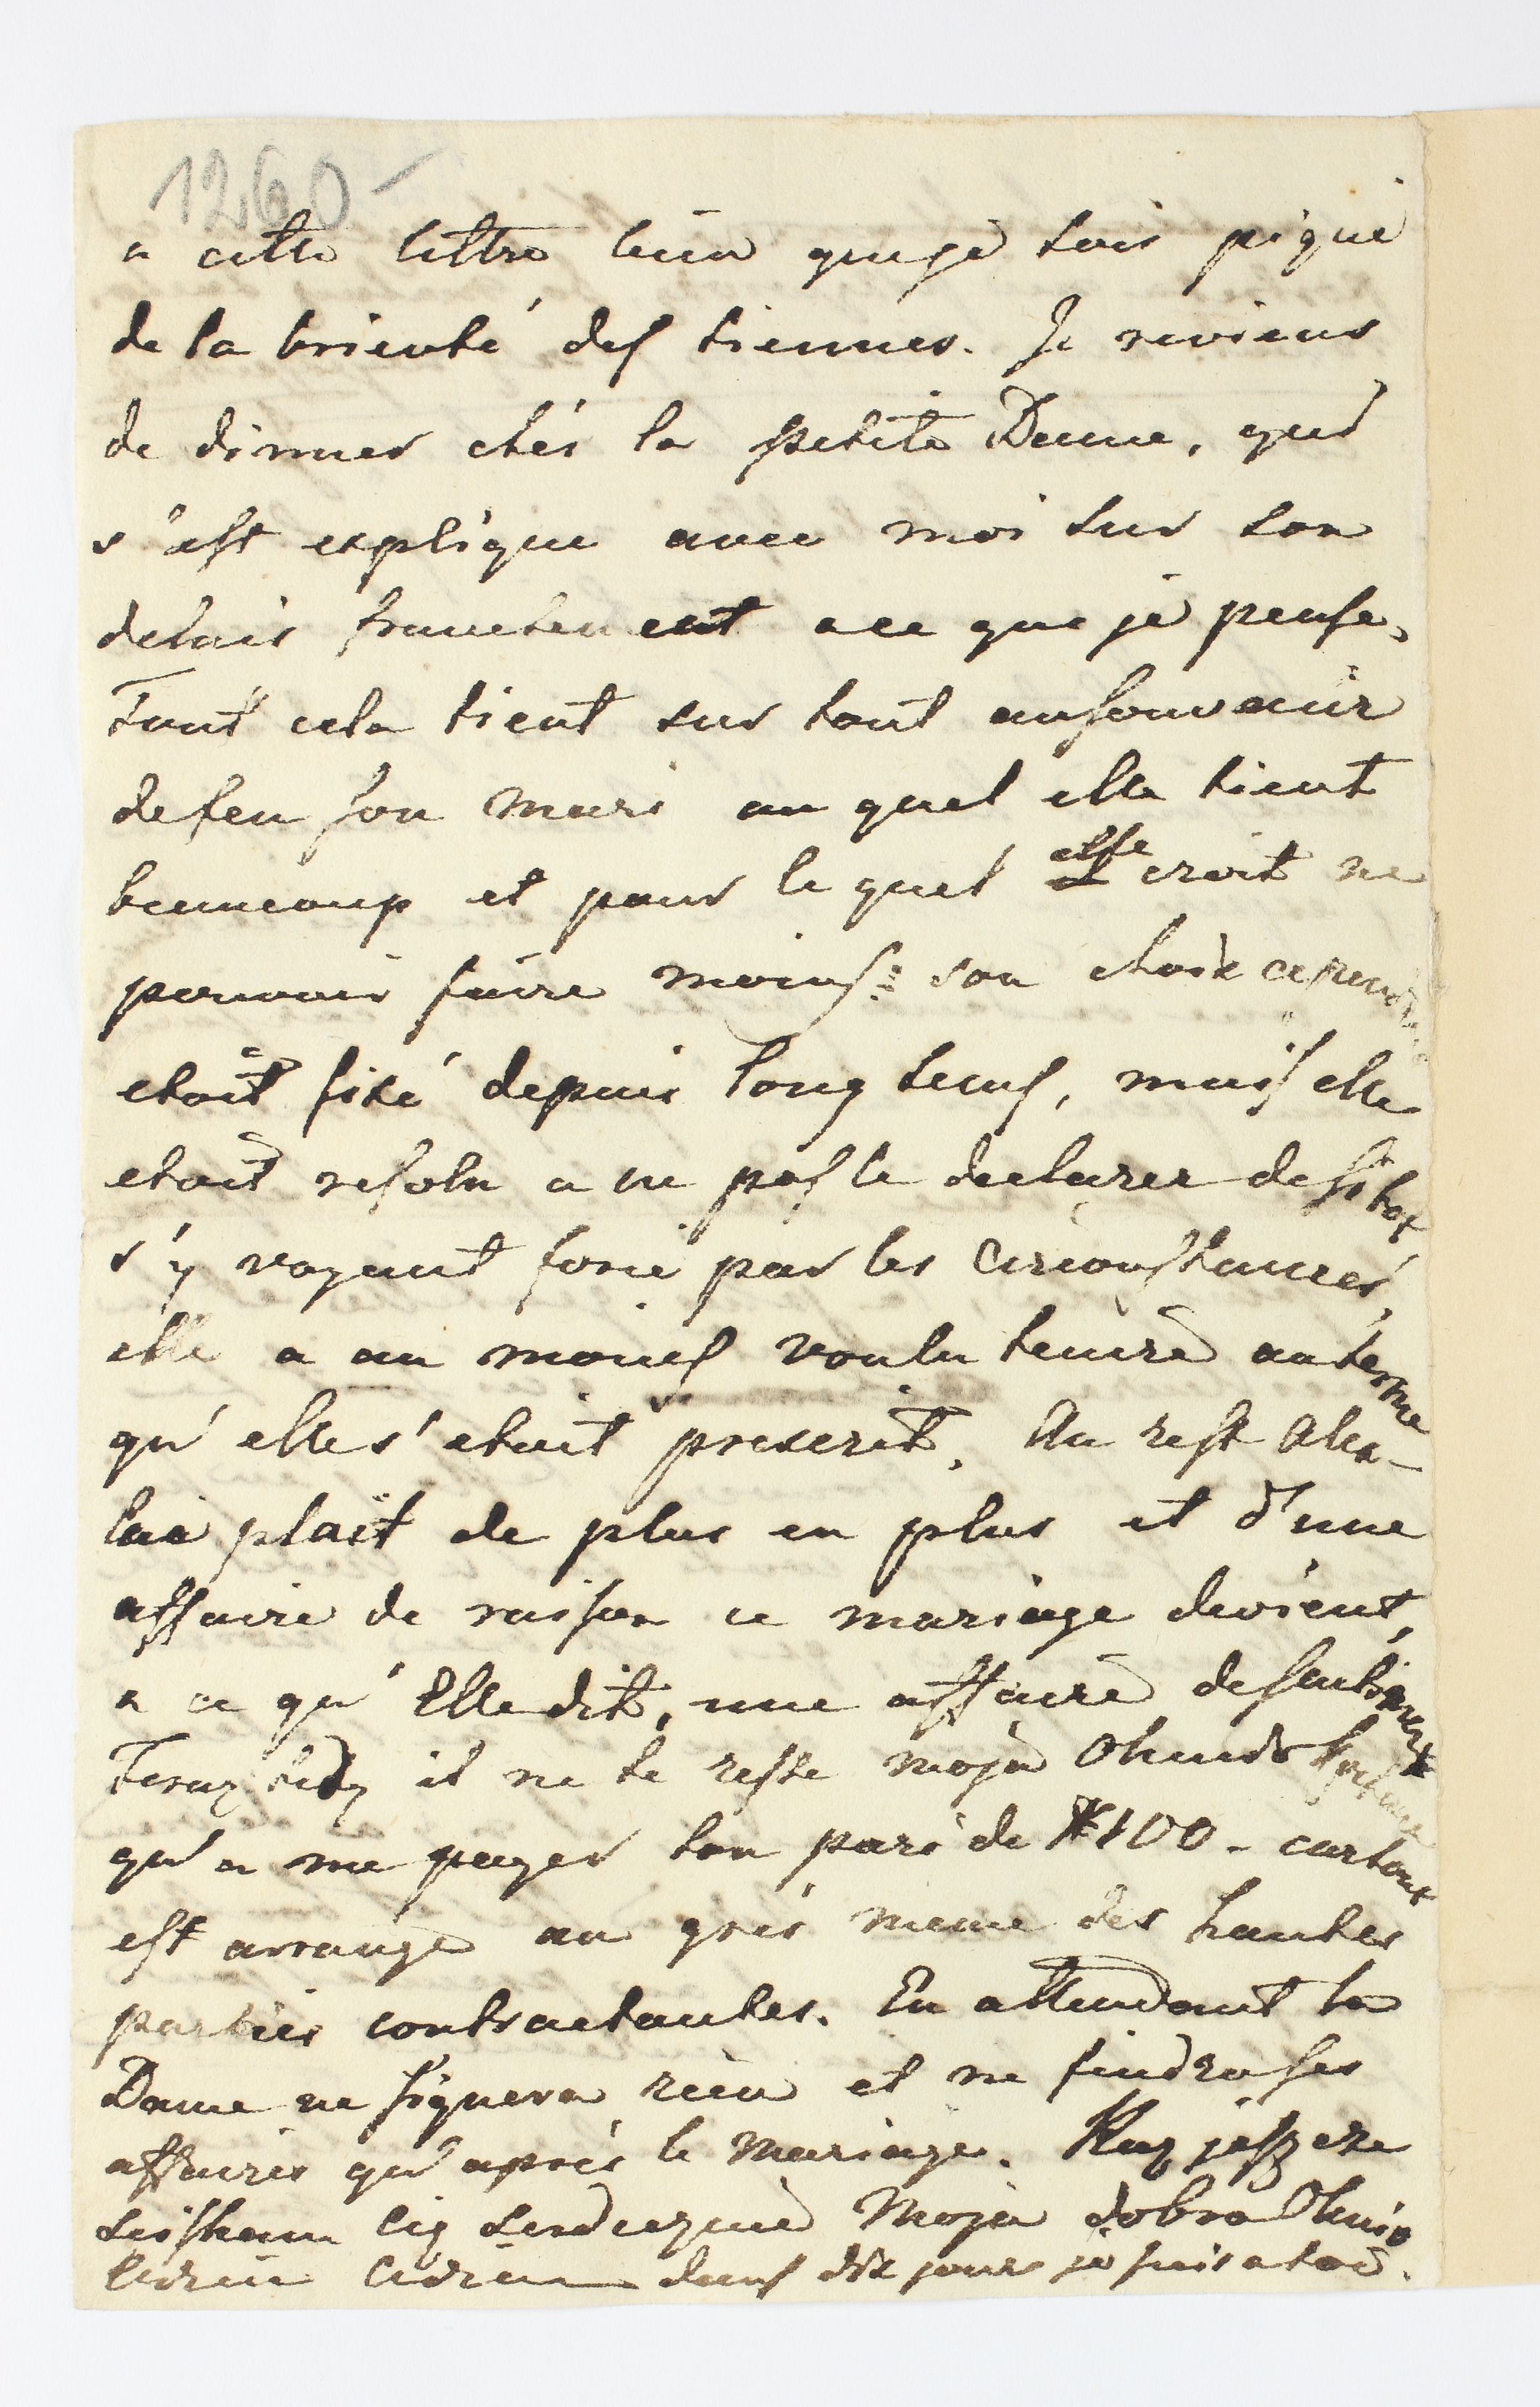 1260-
a cette lettre bien que je sois piqué
de la brieveté des tiennes. Je reviens
de dinner chés la petite Dame, qui
s'est expliqué avec moi sur son
delais franchement a ce que je pense,
Tout cela tient sur tout au souvenir
de feu son mari au quel elle tient
beaucoup et pour le quel elle croit ne
pouvoir faire moins: son choix cependant
etoit fixé depuis long tems, mais elle
etoit resolu a ne pas le declarer de sitot,
s'y voyant forcé par les circonstances,
elle a au moins voulu tenire au terme
qu'elle s'etoit prescrit. Au rest Alex-
lui plait de plus en plus et d'une
affaire de raison ce mariage devient,
a ce qu'Elle dit, une affaire de sentiment
Teraz tedy il ne te reste moja
qu'a me payer ton pari de #100 - car tout
est arrangé au grés meme des hautes
parties contractantes. En attendant la
Dame ne signera rien et ne finira ses
affaires qu'après le mariage. Raz jeszcze
sciskam cię serdecznie moja dobra
Adieu Adieu dans dix jours je suis a toi.